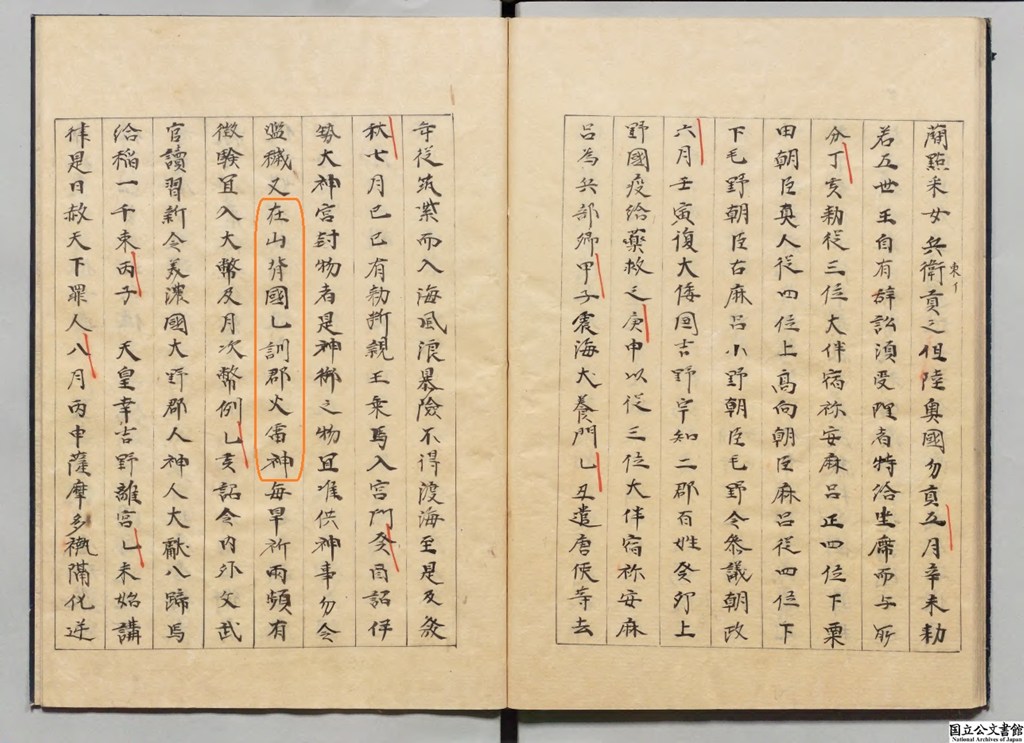 簡點采女兵衛貢之但陸奧國勿貢五月辛未勅
東イ
若五世王自有辞訟須受理者特給坐席而与所
分丁亥勅従三位大伴宿祢安麻呂正四位下粟
田朝臣真人従四位上高向朝臣麻呂従四位下
下毛野朝臣古麻呂小野朝臣毛野令参議朝政
六月壬寅復大倭国吉野宇知二郡百姓癸卯上
野國疫給藥救之庚申以従三位大伴宿祢安麻
呂為兵部卿甲子震海犬養門乙丑遣唐使等去
年従筑紫而入海風浪暴險不得渡海至是及発
秋七月己巳有勅断親王乗馬入宮門癸酉詔伊
勢大神宮封物者是神御之物宜准供神事勿令
濫穢又在山背國乙訓郡火雷神毎旱祈雨頻有
徴験宜入大幣及月次幣例乙亥詔令内外文武
官讀習新令美濃國大野郡人神人大献八蹄馬
給稲一千束丙子天皇幸吉野離宮乙未始講
律是日赦天下罪人八月丙申薩摩多褹隔化逆
国立公文書館
National Archives of Japan